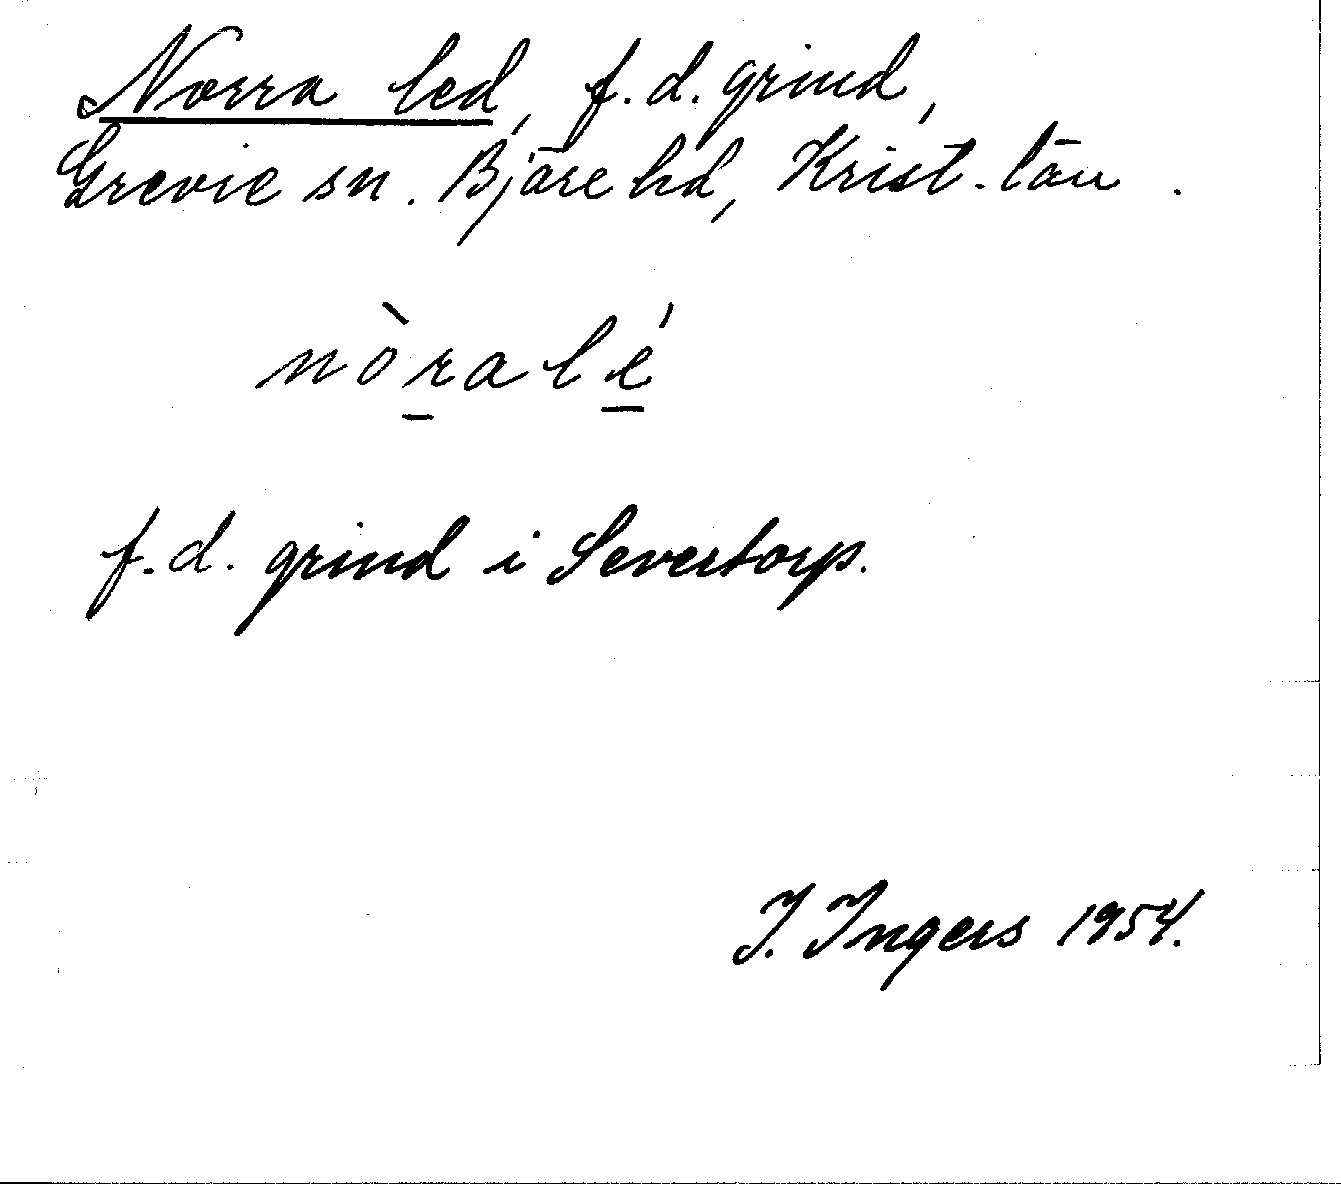 Norra led, f.d. grind,
Grevie sn. Bjäre hd, Krist. län.
nòṟalé̱
f.d. grind i Severtorp.
I. Ingers 1954.